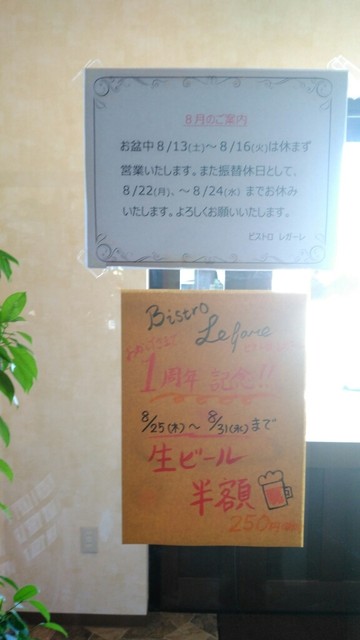 8月のご案内
お盆中8/13(土)～8/16(火)は休まず
営業いたします。また振替休日として、
8/22(月)、～8/24(水)までお休み
いたします。よろしくお願いいたします。
ビストロ レガーレ
Bistro
Legare
おかげさまで
1周年記念!!
8/25(木)～8/31(水)まで
生ビール
半額
250円